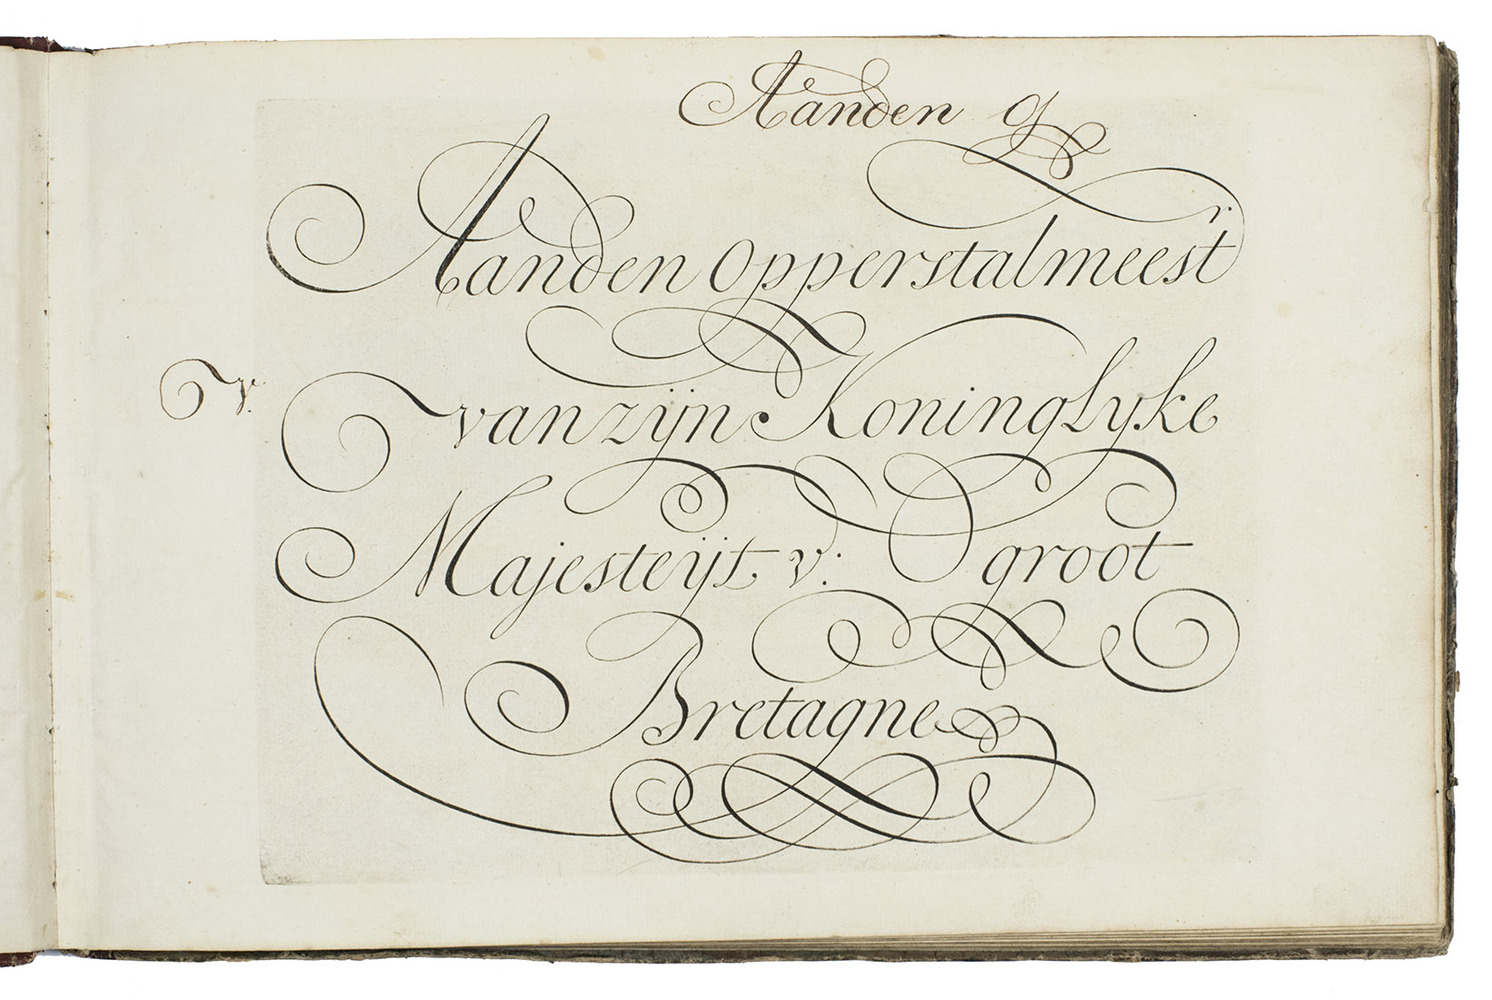 Aanden O
Aanden Opperstalmeest.r
v.
van zijn Koninglyke
Majesteijt v: groot
Bretagne